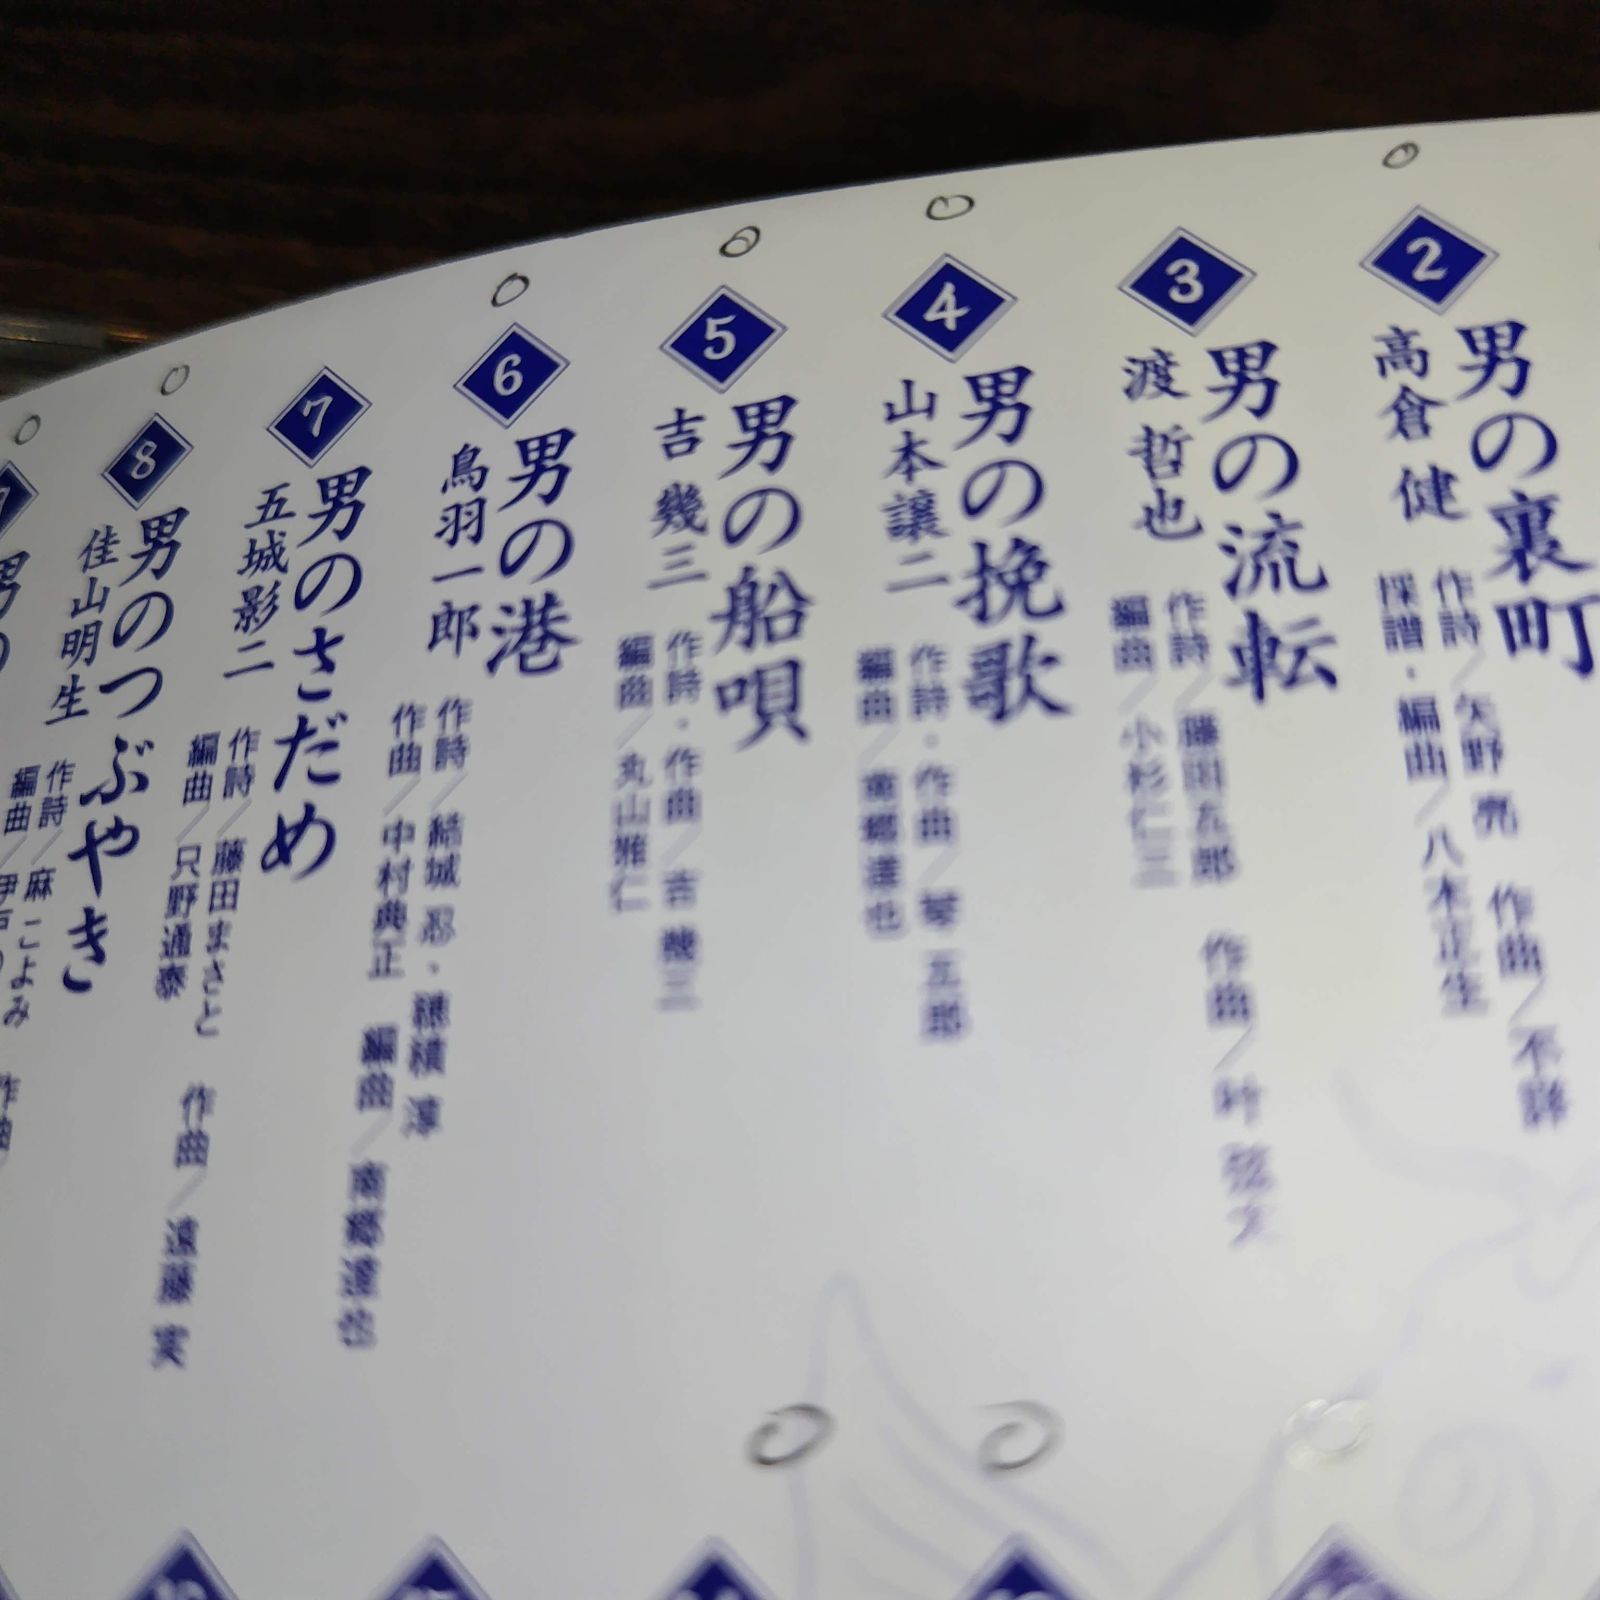 2
男の裏町
高倉 健
作詩／矢野 亮 作曲／不詳
採譜・編曲／八木正生
3
男の流転
渡 哲也
作詩／藤田五郎 作曲／叶 弦大
編曲／小杉仁三
4
男の挽歌
山本譲二
作詩・作曲／琴 五郎
編曲／南郷達也
5
男の船唄
吉 幾三
作詩・作曲／吉 幾三
編曲／丸山雅仁
6
男の港
鳥羽一郎
作詩／結城 忍・穂積 淳
作曲／中村典正 編曲／南郷達也
7
男のさだめ
五城影二
作詩／藤田まさと 作曲／遠藤 実
編曲／只野通泰
8
男のつぶやき
佳山明生
作詩／麻 こよみ 作曲／
編曲／伊戸の
男の